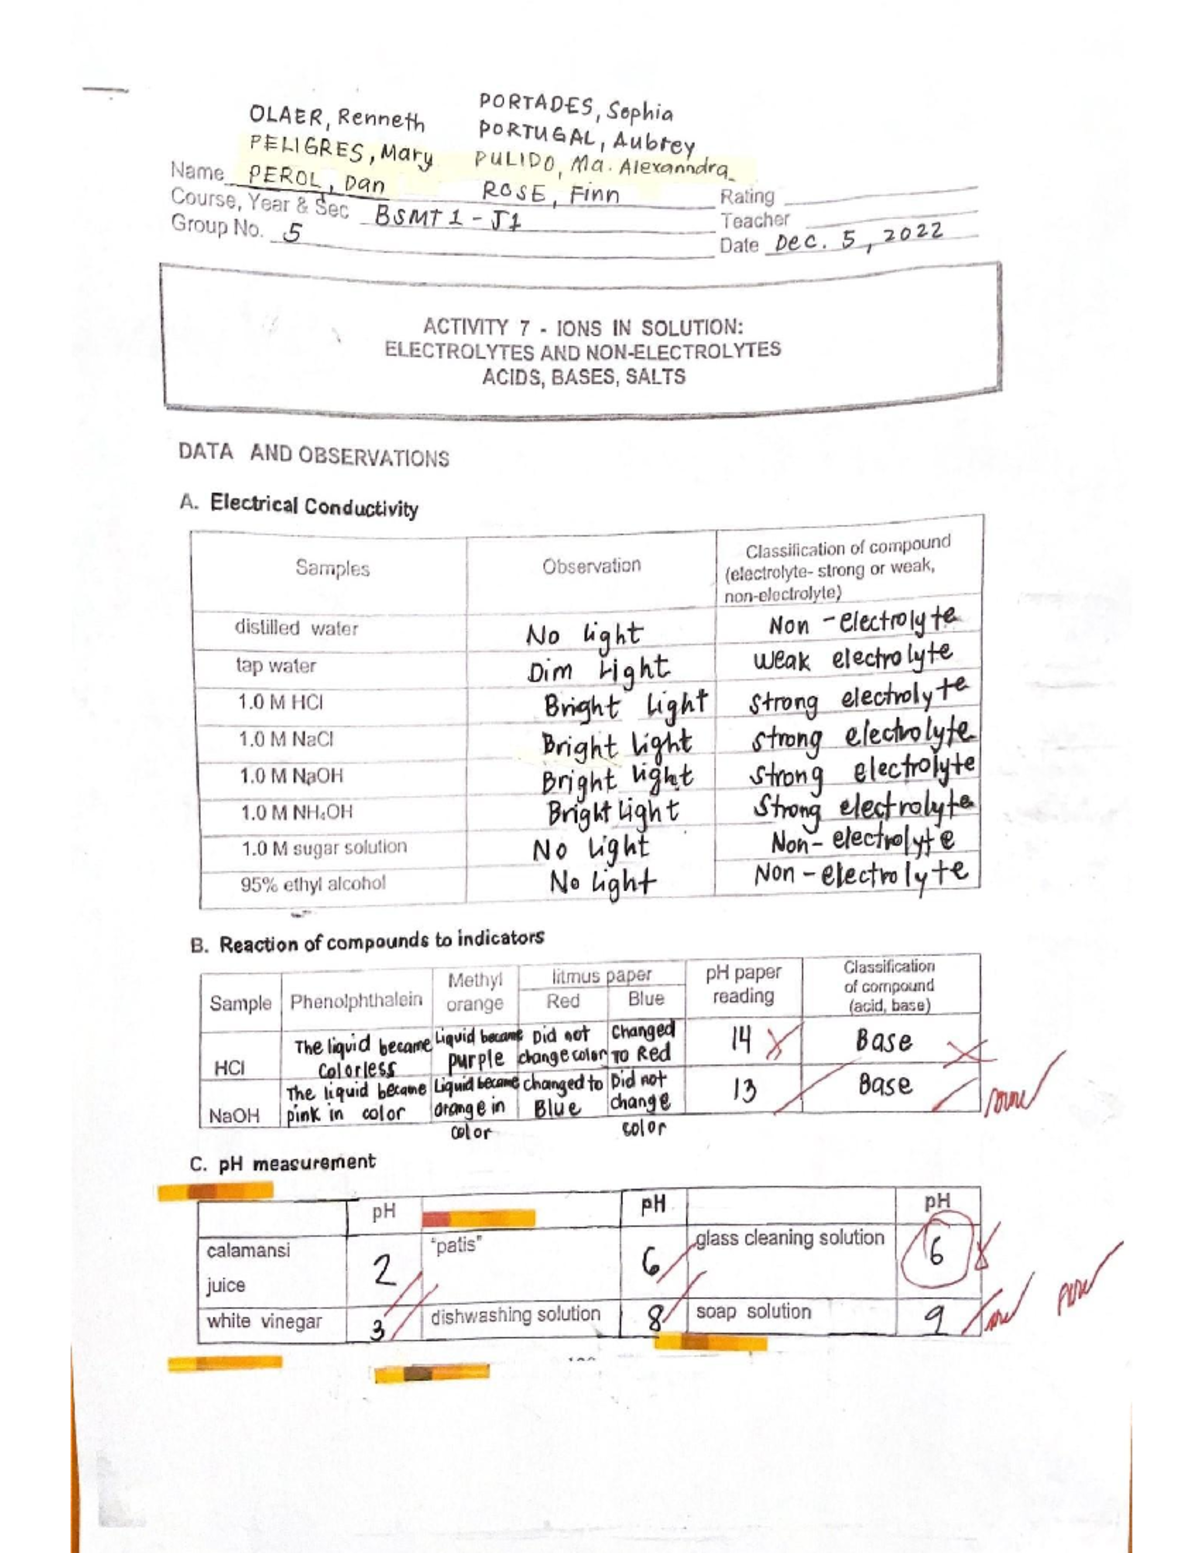 OLAER, Renneth PORTADES, Sophia
PELIGRES, Mary PORTUGAL, Aubrey
PULIDO, Ma. Alexanndra
Name PEROL, Dan ROSE, Finn Rating
Course, Year & Sec BSMT 1 - J1 Teacher
Group No. 5 Date Dec. 5, 2022
ACTIVITY 7 - IONS IN SOLUTION:
ELECTROLYTES AND NON-ELECTROLYTES
ACIDS, BASES, SALTS
DATA AND OBSERVATIONS
A. Electrical Conductivity
Samples Observation Classification of compound
(electrolyte- strong or weak,
non-electrolyte)
distilled water No light Non - electrolyte
tap water Dim Light weak electrolyte
1.0 M HCl Bright Light strong electrolyte
1.0 M NaCl Bright light strong electrolyte
1.0 M NaOH Bright light strong electrolyte
1.0 M NH₄OH Bright Light Strong electrolyte
1.0 M sugar solution No Light Non- electrolyte
95% ethyl alcohol No Light Non - electrolyte
B. Reaction of compounds to indicators
Sample Phenolphthalein Methyl orange litmus paper pH paper reading Classification of compound (acid, base)
Red Blue
HCl The liquid became colorless Liquid became purple Did not change color Changed TO Red 14 Base
NaOH The liquid became pink in color Liquid became orange in color changed to Blue Did not change color 13 Base
C. pH measurement
pH pH pH
calamansi juice 2 "patis" 6 glass cleaning solution 6
white vinegar 3 dishwashing solution 8 soap solution 9